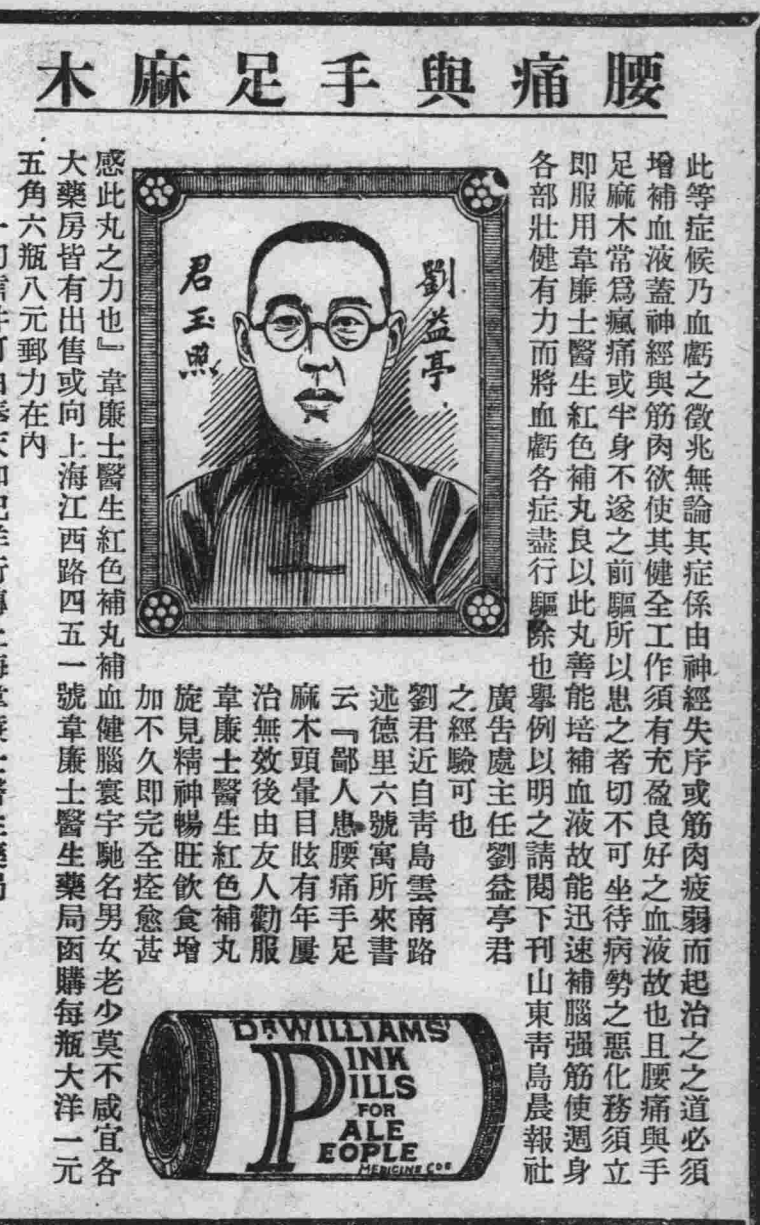 腰痛與手足麻木
此等症候乃血虧之徵兆無論其症係由神經失序或筋肉疲弱而起治之之道必須
增補血液蓋神經與筋肉欲使其健全工作須有充盈良好之血液故也且腰痛與手
足麻木常爲瘋痛或半身不遂之前驅所以患之者切不可坐待病勢之惡化務須立
即服用韋廉士醫生紅色補丸良以此丸善能培補血液故能迅速補腦强筋使週身
各部壯健有力而將血虧各症盡行驅除也舉例以明之請閱下刊山東靑島晨報社
廣告處主任劉益亭君
之經驗可也
劉君近自靑島雲南路
述德里六號寓所來書
云『鄙人患腰痛手足
麻木頭暈目眩有年屢
治無效後由友人勸服
韋廉士醫生紅色補丸
旋見精神暢旺飲食增
加不久即完全痊愈甚
感此丸之力也』韋廉士醫生紅色補丸補血健腦寰宇馳名男女老少莫不咸宜各
大藥房皆有出售或向上海江西路四五一號韋廉士醫生藥局函購每瓶大洋一元
五角六瓶八元郵力在內
劉益亭
君玉照
DR WILLIAMS'
PINK
PILLS
FOR
PALE
PEOPLE
MEDICINE CO